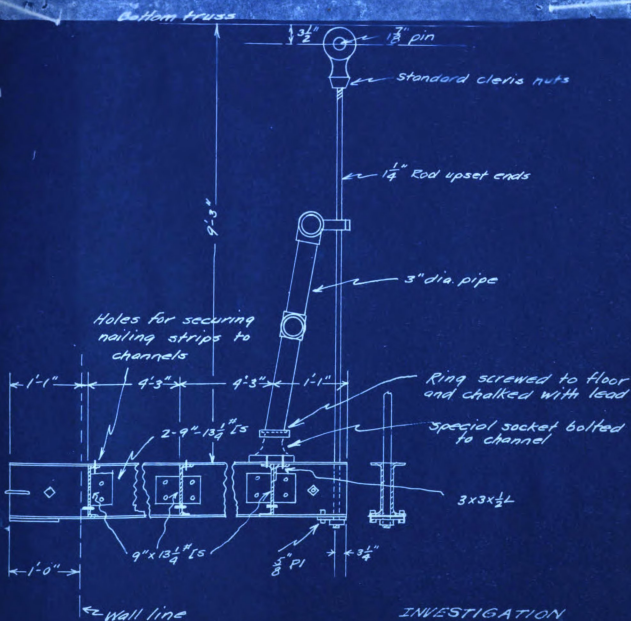 Bottom truss
3½"
1⅞" pin
Standard clevis nuts
1¼" Rod upset ends
9'-3"
3" dia. pipe
Holes for securing
nailing strips to
channels
1'-1"
4'-3"
4'-3"
1'-1"
Ring screwed to floor
and chalked with lead
2-9"-13¼" [s
Special socket bolted
to channel
3x3x½L
9"x13¼" [s
⅝" Pl
3¼"
1'-0"
Wall line
INVESTIGATION